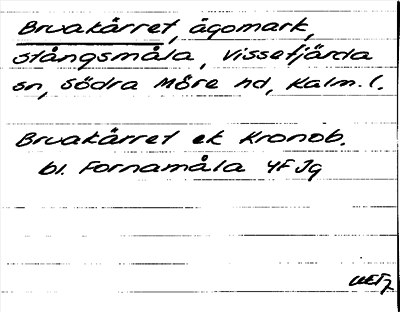 Bruakärret, ägomark,
Stångsmåla, Vissefjärda
sn, Södra Möre hd, Kalm. l.
Bruakärret ek Kronob.
bl. Fornamåla 4F Jg